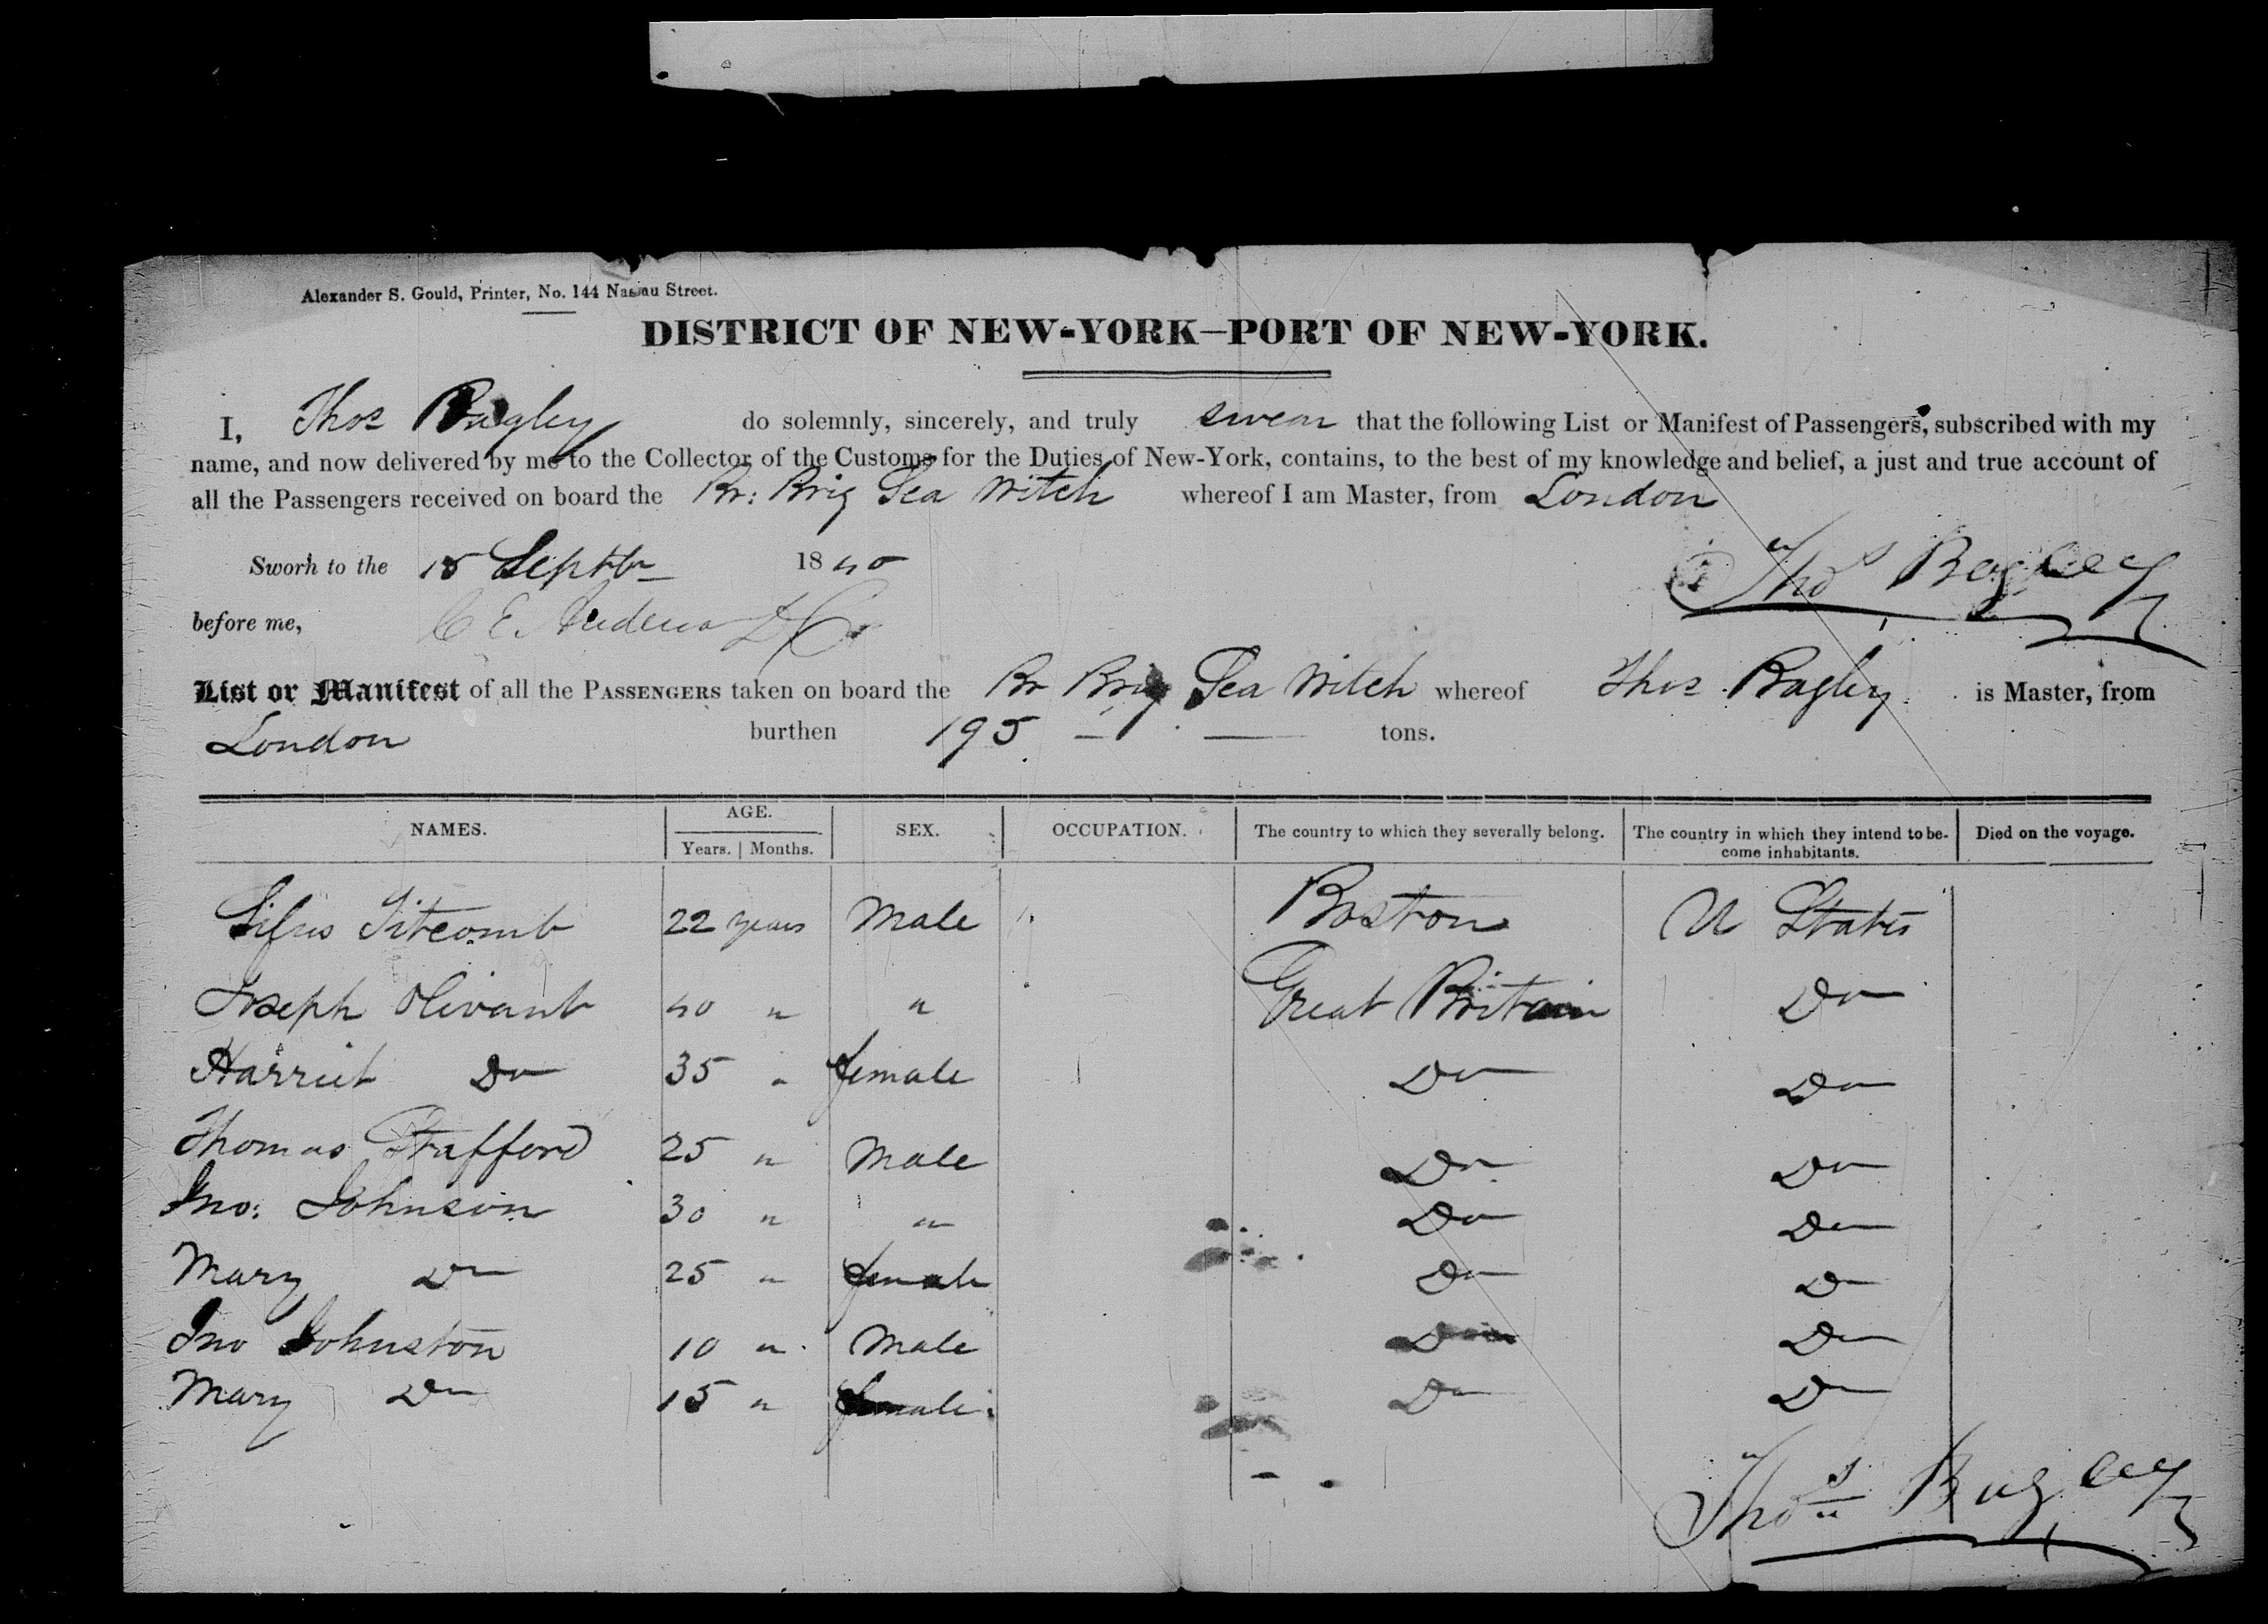 Alexander S. Gould, Printer, No. 144 Nassau Street.
DISTRICT OF NEW-YORK—PORT OF NEW-YORK.
I, Thos Bagley do solemnly, sincerely, and truly swear that the following List or Manifest of Passengers, subscribed with my
name, and now delivered by me to the Collector of the Customs for the Duties of New-York, contains, to the best of my knowledge and belief, a just and true account of
all the Passengers received on board the Br: Brig Sea Witch whereof I am Master, from London
Sworn to the 18 Septbr 1840
Thos Bagley
before me, C E
List or Manifest of all the PASSENGERS taken on board the Br Brig Sea Witch whereof Thos Bagley is Master, from
London burthen 195 tons.
NAMES. AGE. Years. Months. SEX. OCCUPATION. The country to which they severally belong. The country in which they intend to become inhabitants. Died on the voyage.
Titcomb 22 years Male Boston U States
Joseph Olivant 40 " " Great Britain Do
Harriet Do 35 " female Do Do
Thomas Strafford 25 " Male Do Do
Jno: Johnson 30 " " Do Do
Mary Do 25 " female Do Do
Jno Johnston 10 " Male Do Do
Mary Do 15 " female Do Do
Thos Bagley